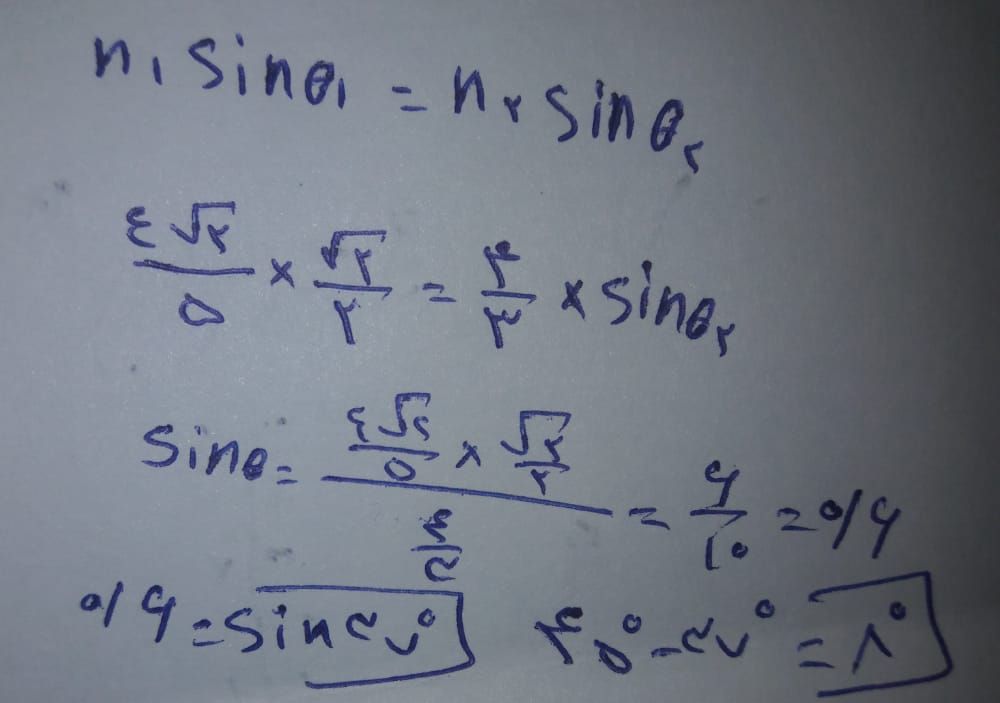 n₁ sinθ₁ = n₂ sinθ₂
(۴√۲)/۵ × √۲/۲ = ۴/۳ × sinθ₂
sinθ = ((۴√۲)/۵ × √۲/۲) / (۴/۳) = ۶/۱۰ = ۰/۶
۰/۶ = sin ۳۷° ۴۵° - ۳۷° = ۸°